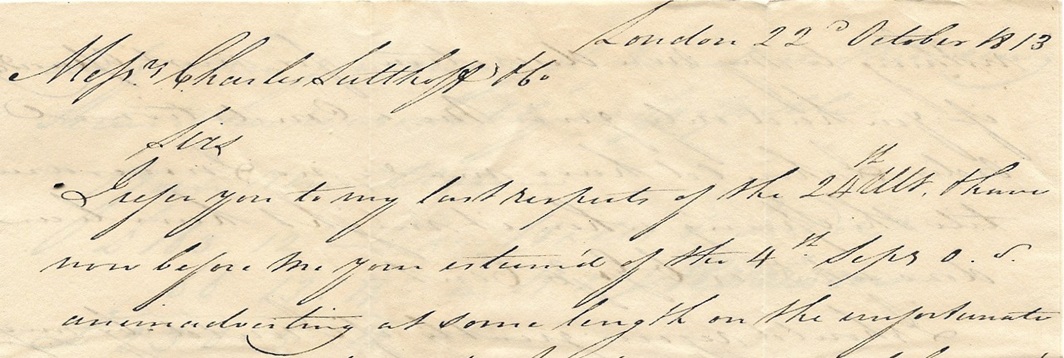 London 22d October 1813
Messrs Charles Sutthoff & Co
Sirs
I refer you to my last respects of the 24st Ulto. & have
now before me your esteem'd of the 4th Sepr O. S.
animadverting at some length on the unfortunate